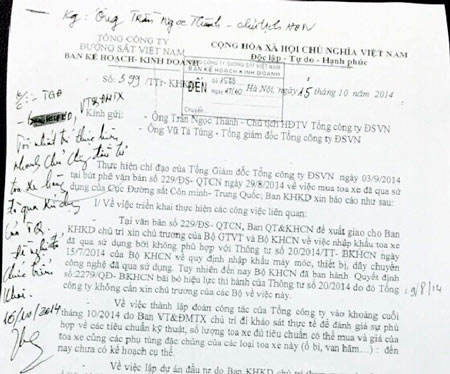 Kg: Ông Trần Ngọc Thành - chủ tịch HĐTV
TỔNG CÔNG TY
ĐƯỜNG SẮT VIỆT NAM
BAN KẾ HOẠCH- KINH DOANH
CỘNG HÒA XÃ HỘI CHỦ NGHĨA VIỆT NAM
Độc lập - Tự do - Hạnh phúc
Số: 599 /TTr- KHKD
TỔNG CÔNG TY ĐƯỜNG SẮT VIỆT NAM
BAN KẾ HOẠCH KINH DOANH
ĐẾN
Chuyển:
Hà Nội, ngày 15 tháng 10 năm 2014
Kính gửi: - Ông Trần Ngọc Thành - Chủ tịch HĐTV Tổng công ty ĐSVN
- Ông Vũ Tá Tùng - Tổng giám đốc Tổng công ty ĐSVN
VT&ĐMTX
Tôi nhất trí
toa xe
15/10/2014
Thực hiện chỉ đạo của Tổng Giám đốc Tổng công ty ĐSVN ngày 03/9/2014
tại bút phê văn bản số 229/ĐS- QTCN ngày 29/8/2014 về việc mua toa xe đã qua sử
dụng của Cục Đường sắt Côn minh- Trung Quốc; Ban KHKD xin báo cáo như sau:
1/ Về việc triển khai thực hiện các công việc liên quan:
Tại văn bản số 229/ĐS- QTCN, Ban QT&KHCN đề xuất giao cho Ban
KHKD chủ trì xin chủ trương của Bộ GTVT và Bộ KHCN về việc nhập khẩu toa xe
đã qua sử dụng bởi không phù hợp với Thông tư số 20/2014/TT- BKHCN ngày
15/7/2014 của Bộ KHCN về quy định nhập khẩu máy móc, thiết bị, dây chuyền
công nghệ đã qua sử dụng. Tuy nhiên đến nay Bộ KHCN đã ban hành Quyết định
số:2279/QĐ- BKHCN bãi bỏ hiệu lực thi hành của Thông tư số 20/2014 do đó Tổng
9/8/14
công ty không cần xin chủ trương của các Bộ về việc này.
Về việc thành lập đoàn công tác của Tổng công ty vào khoảng cuối
tháng 10/2014 do Ban VT&ĐMTX chủ trì đi khảo sát thực tế để đánh giá sự phù
hợp về các tiêu chuẩn kỹ thuật, số lượng toa xe đủ tiêu chuẩn có thể mua và giá của
toa xe cũng các phụ tùng đặc chủng của các loại toa xe này (ổ bi, van hãm…) : đến
nay chưa có kế hoạch cụ thể.
Về việc lập dự án đầu tư do Ban KHKD chủ trì